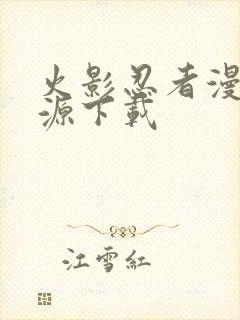 火影忍者漫
源下載
江雪紅